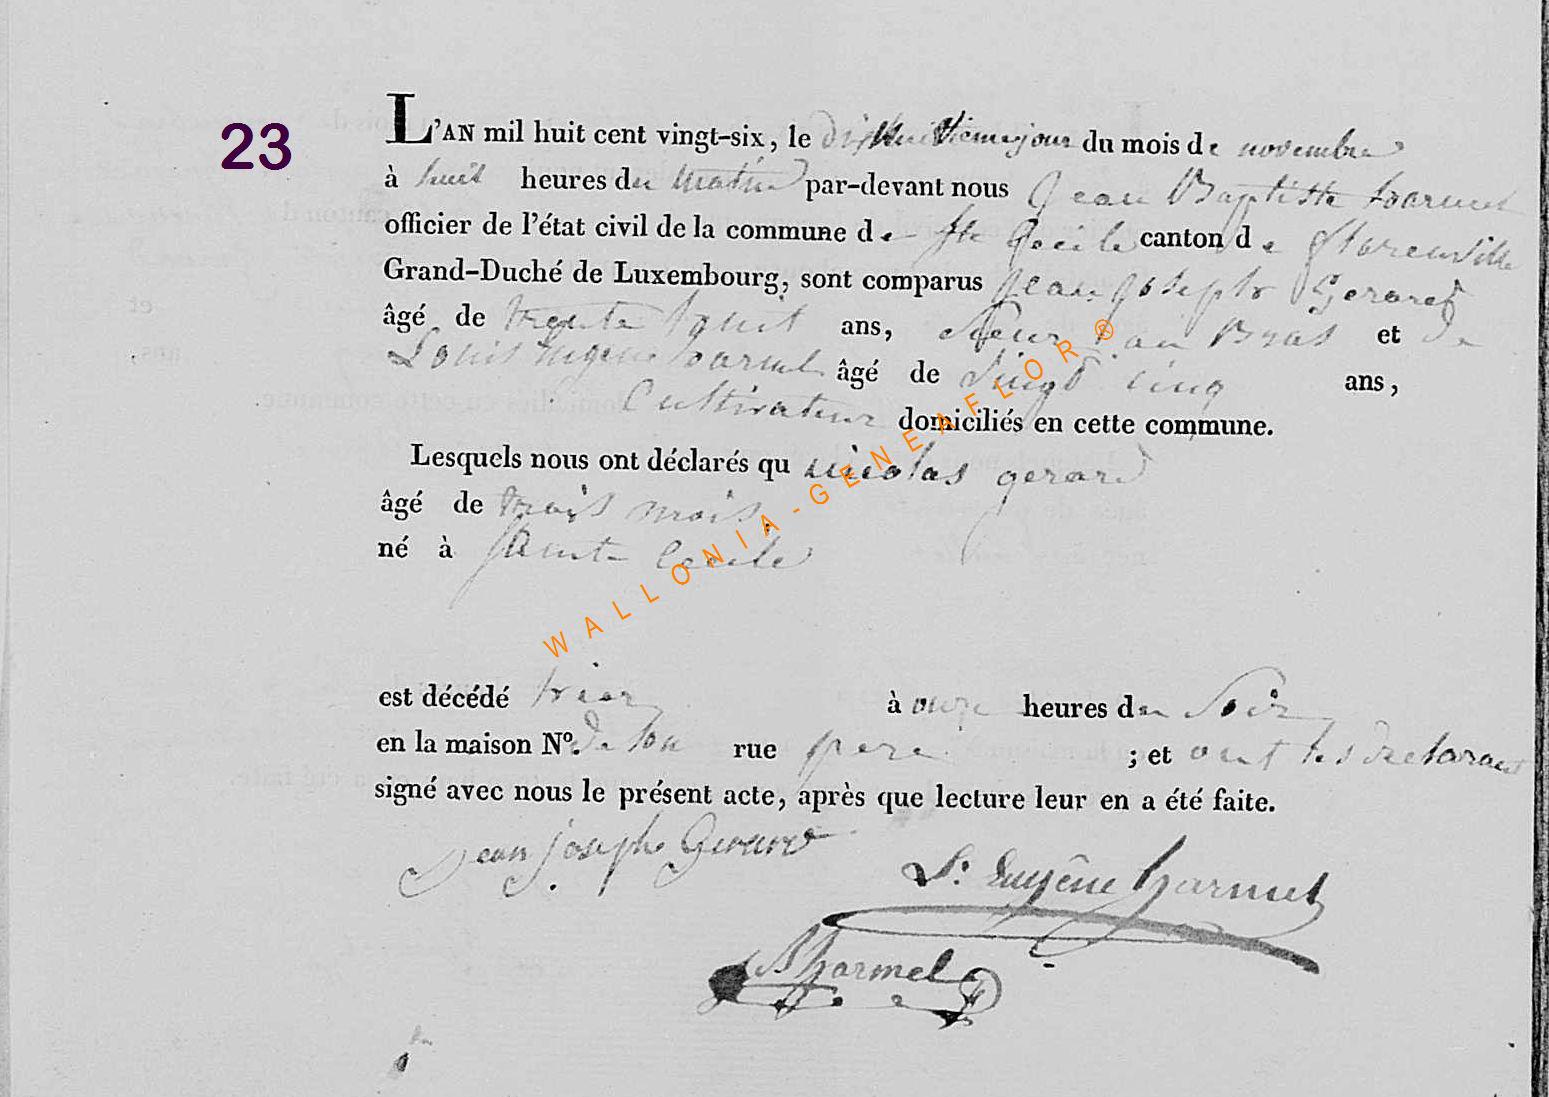 23
L'AN mil huit cent vingt-six, le dixhuitiemejour du mois de novembre
à huit heures du matin par-devant nous Jean Baptiste harmel
officier de l'état civil de la commune de Ste Cecile canton de florenville
Grand-Duché de Luxembourg, sont comparus jean joseph Gerard
âgé de trente huit ans, au Bras et de
Louis Eugene harmel âgé de vingt cinq ans,
Cultivateur domiciliés en cette commune.
Lesquels nous ont déclarés qu nicolas gerard
âgé de trois mois
né à sainte Cecile
est décédé hier à onze heures du Soir
en la maison N°. de son rue pere ; et ont les declarant
signé avec nous le présent acte, après que lecture leur en a été faite.
Jean joseph Gerard
L: Eugêne harmel
JB harmel
WALLONIA-GENEAFLOR®